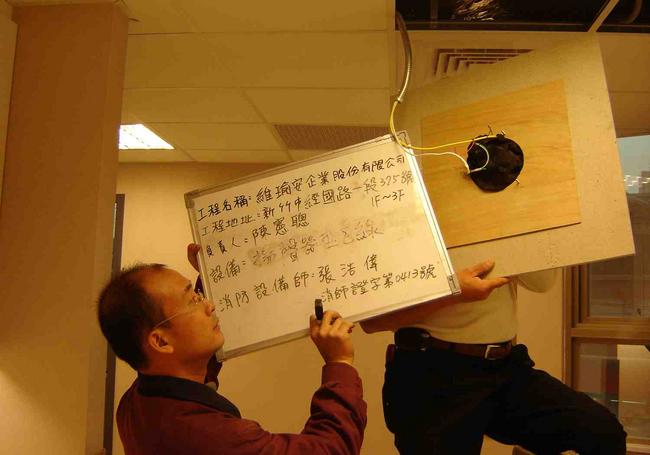 工程名稱:維瑜安企業股份有限公司
工程地址:新竹市經國路一段375號
1F~3F
負責人:陳憲聰
設備:揚聲器型式線
消防設備師:張浩偉
消師證字第0413號